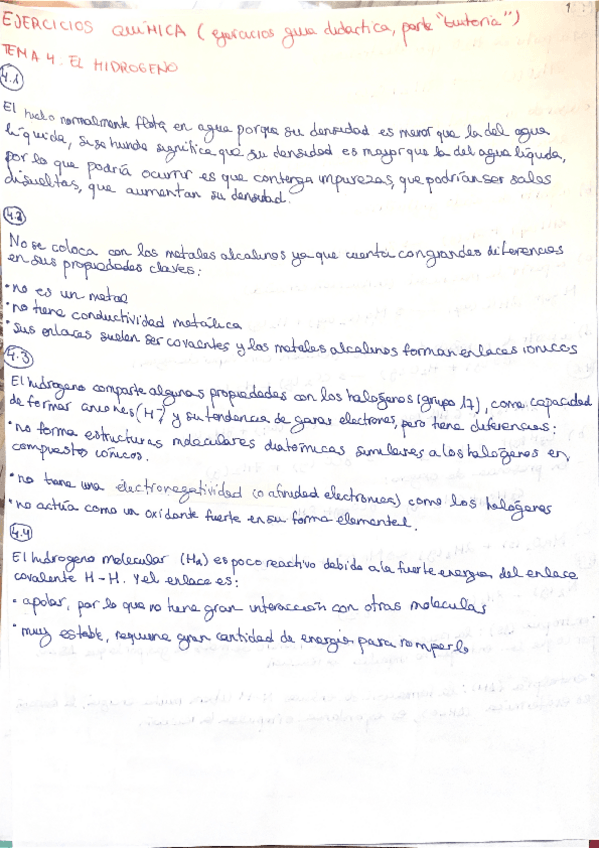 1
EJERCICIOS QUÍMICA (ejercicios guía didáctica, parte "tutoría")
TEMA 4. EL HIDROGENO
4.1
El hielo normalmente flota en agua porque su densidad es menor que la del agua
líquida, si se hunde significa que su densidad es mayor que la del agua líquida,
por lo que podría ocurrir es que contenga impurezas, que podrían ser sales
disueltas, que aumentan su densidad.
4.2
No se coloca con los metales alcalinos ya que cuenta con grandes diferencias
en sus propiedades claves:
· no es un metal
· no tiene conductividad metálica
· sus enlaces suelen ser covalentes y los metales alcalinos forman enlaces ionicos
4.3
El hidrogeno comparte algunas propiedades con los halogenos (grupo 17), como capacidad
de formar aniones (H⁻) y su tendencia de ganar electrones, pero tiene diferencias:
· no forma estructuras moleculares diatómicas similares a los halogenos en
compuestos iónicos.
· no tiene una electronegatividad (o afinidad electronica) como los halogenos
· no actúa como un oxidante fuerte en su forma elemental.
4.4
El hidrogeno molecular (H₂) es poco reactivo debido a la fuerte energia del enlace
covalente H-H. Y el enlace es:
· apolar, por lo que no tiene gran interacción con otras moleculas
· muy estable, requiere gran cantidad de energia para romperlo